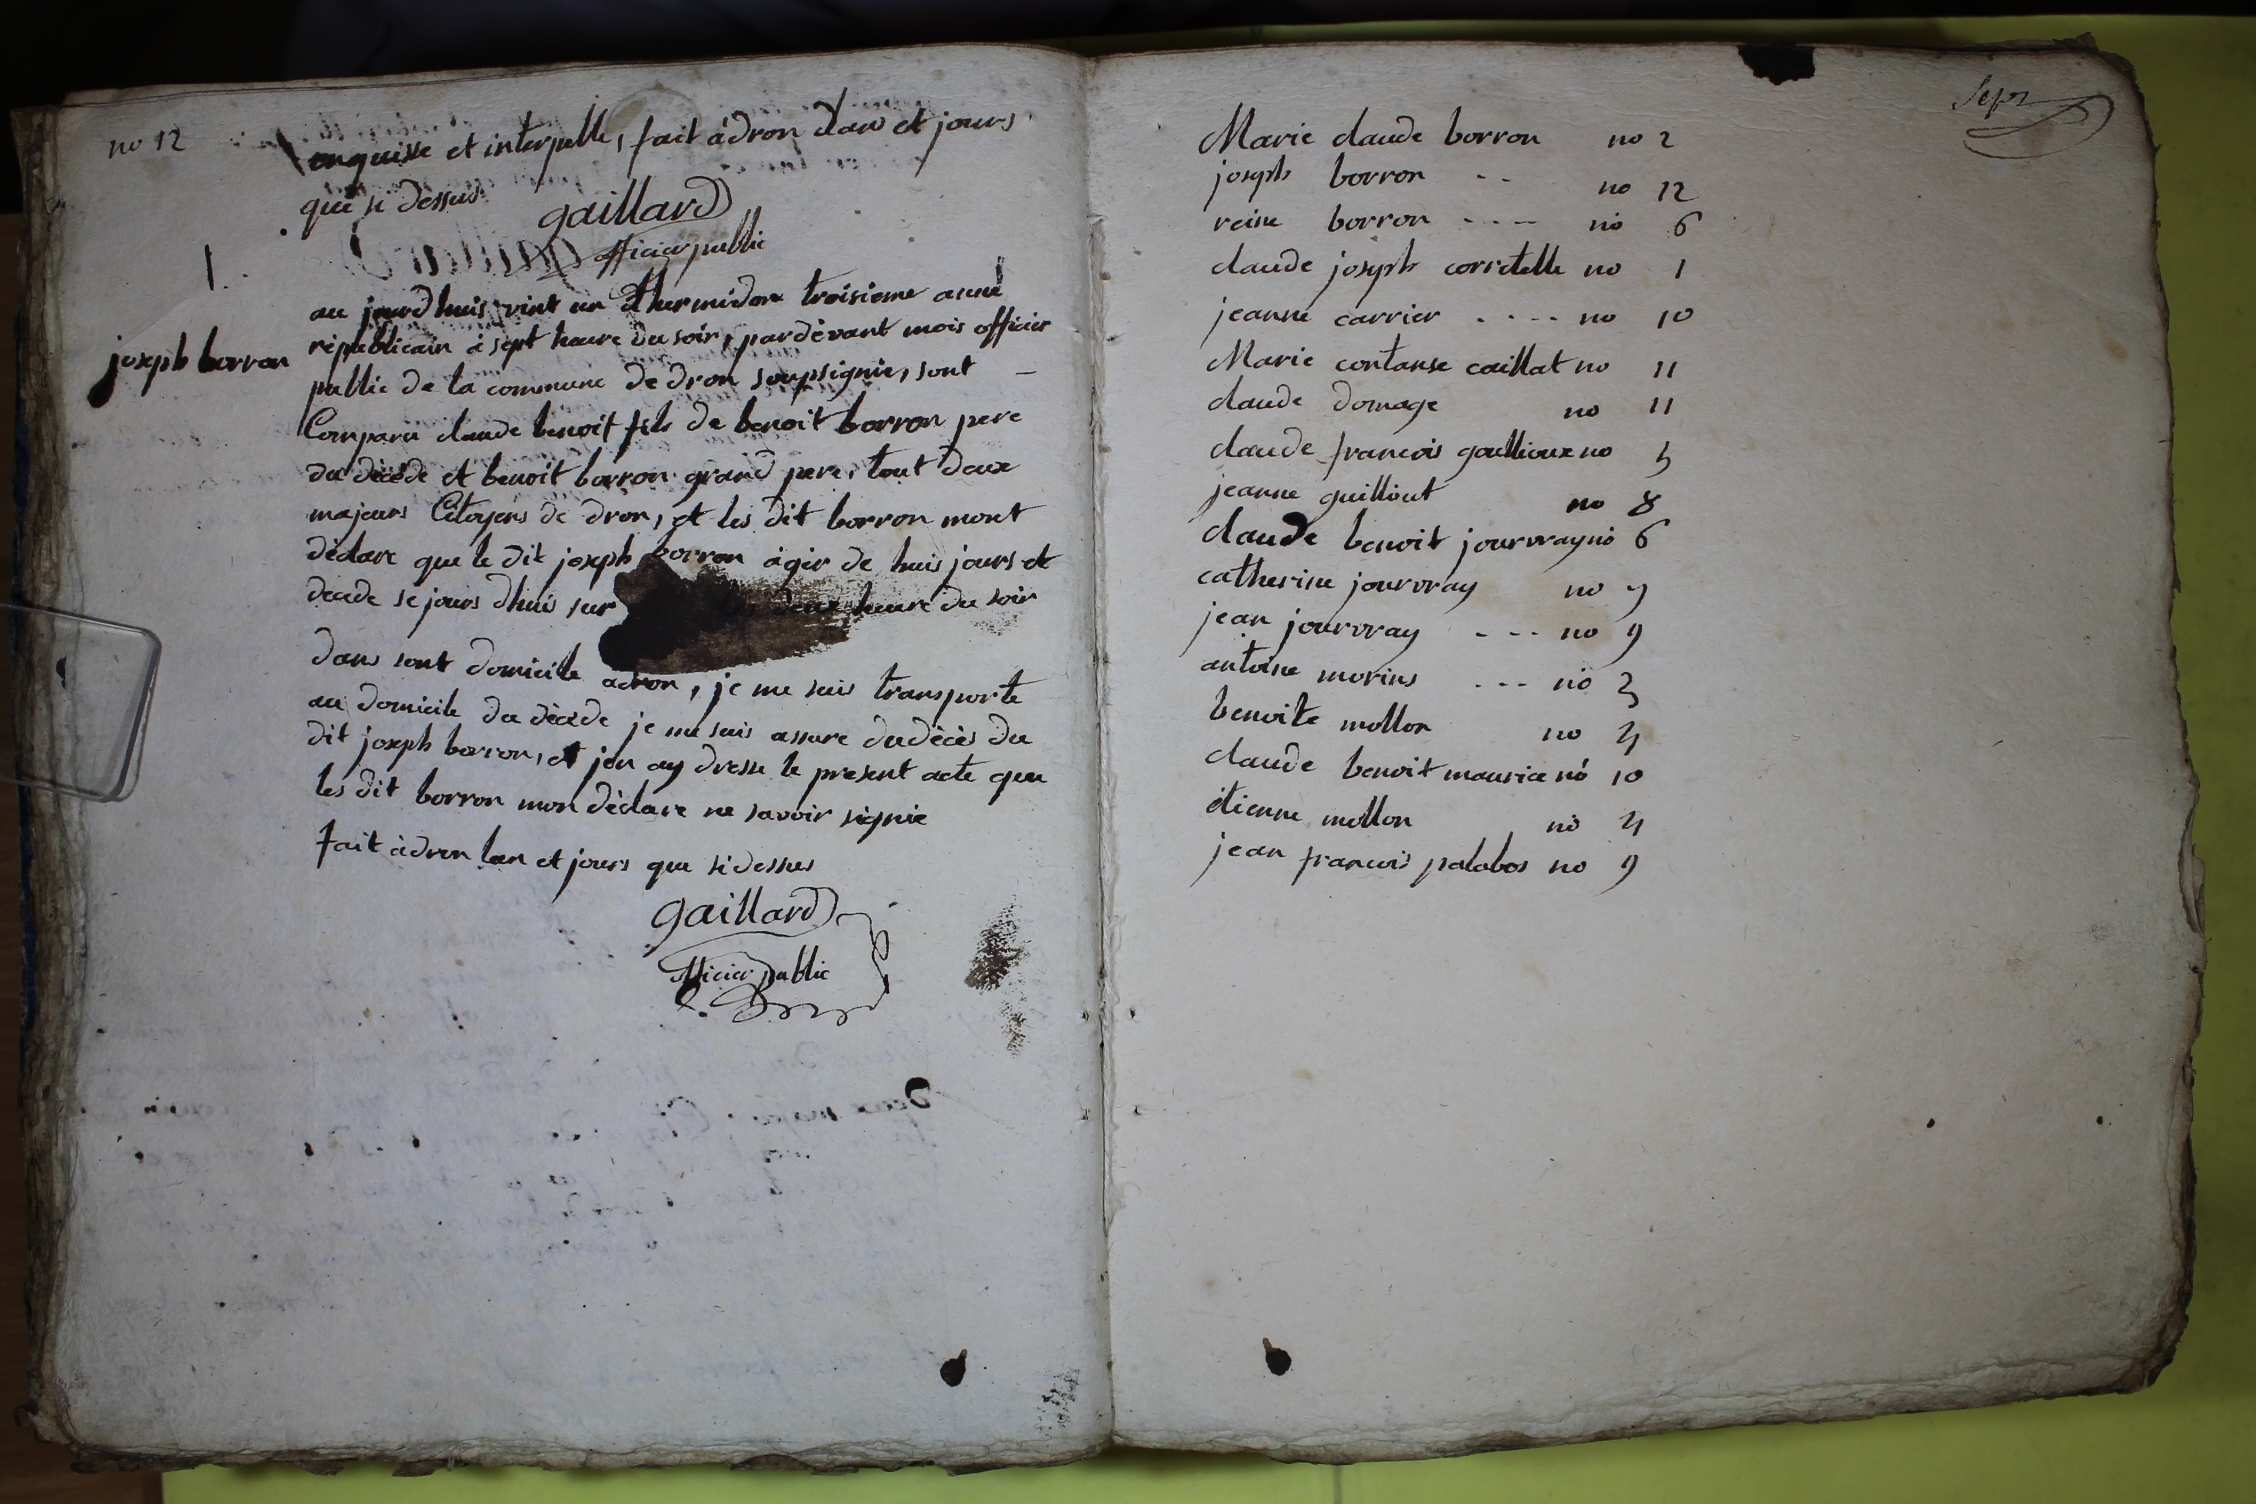 no 12
enquisse et interpelle, fait à dron dans et jours
que si dessus
gaillard
officier public
1.
joseph borron
au jourdhuis vint un thermidon troisieme anné
republicain à sept heure du soir, pardevant mois officier
public de la commune de dron soupsignie, sont
Comparu claude benoit fils de benoit borron pere
du décéde et benoit borron grand pere, tout deux
majeurs Citoyens de dron, et les dit borron mont
déclare que le dit joseph borron agir de huis jours et
decede se jours dhui sur deux heure du soir
dans sont domicile adron, je me suis transporte
au domicile du décede je me suis assure du décès du
dit joseph borron, et jen ay dresse le present acte que
les dit borron mon déclare ne savoir signie
fait à dron lan et jours que si dessus
gaillard
officier public
Sept
Marie claude borron no 2
joseph borron -- no 12
reine borron ---- no 6
claude joseph corretelle no 1
jeanne carrier ---- no 10
Marie contanse caillat no 11
claude domage no 11
claude francois goullioux no 5
jeanne guilliout no 8
claude benoit jourvray no 6
catherine jourvray no 7
jean jourvray --- no 9
antoine morins --- no 3
benoite mollon no 4
claude benoit maurice no 10
étienne mollon no 4
jean francois palabos no 9